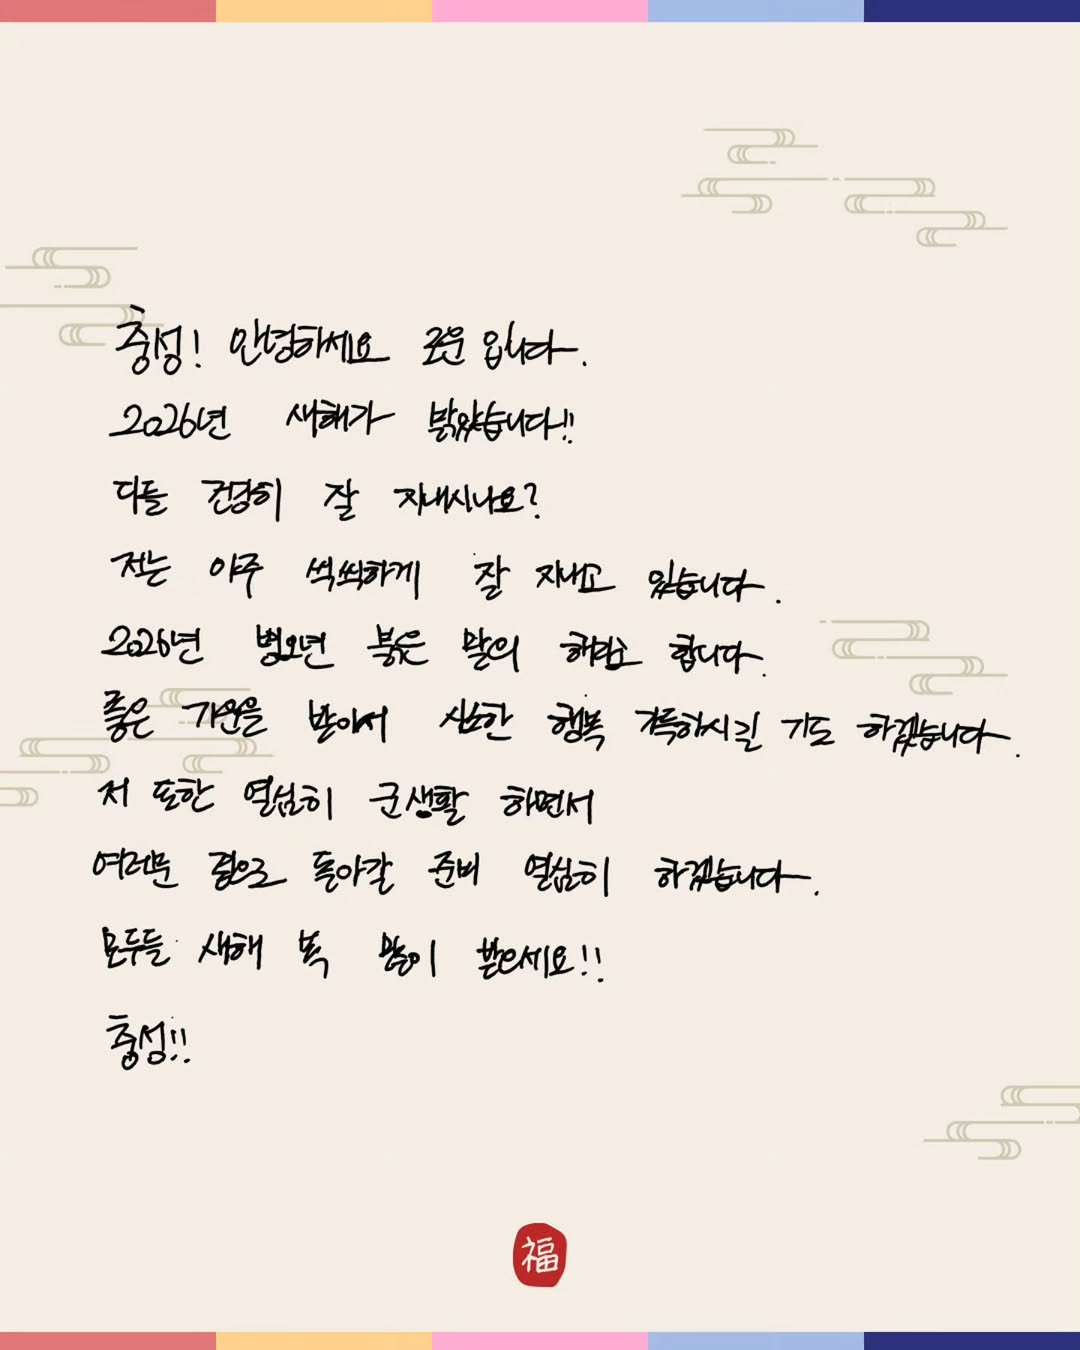 충성! 안녕하세요 로운 입니다.
2026년 새해가 밝았습니다!!
다들 건강히 잘 지내시나요?
저는 아주 씩씩하게 잘 지내고 있습니다.
2026년 병오년 붉은 말의 해라고 합니다.
좋은 기운을 받아서 행복 가득하시길 기도 하겠습니다.
저 또한 열심히 군생활 하면서
여러분 곁으로 돌아갈 준비 열심히 하겠습니다.
모두들 새해 복 많이 받으세요!!
충성!!
福